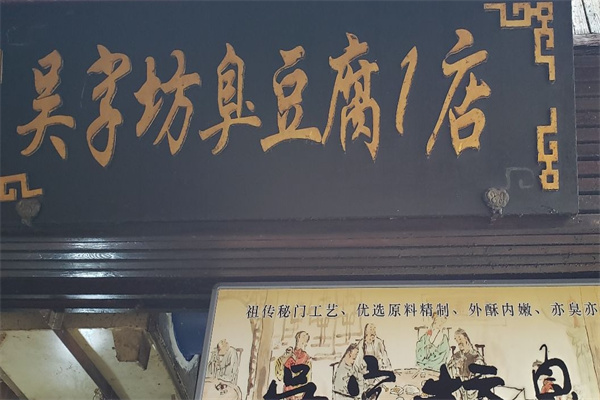 吴字坊臭豆腐1店
祖传秘门工艺、优选原料精制、外酥内嫩、亦臭亦